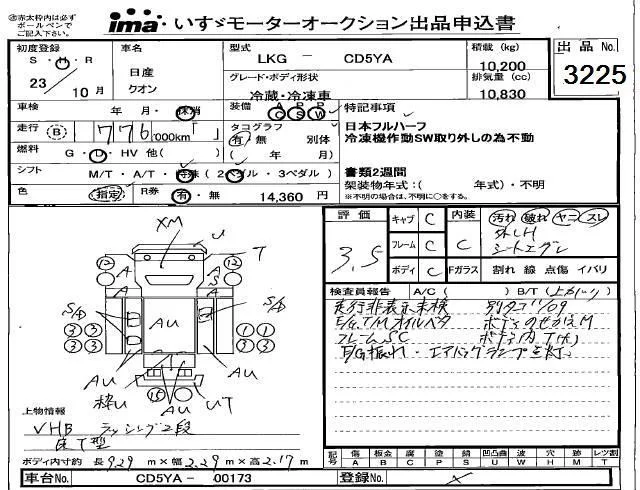 ㊟赤太枠内は必ず
ボールペンで
ご記入下さい。
ima・いすゞモーターオークション出品申込書
初度登録 車名 型式 積載 (kg) 出品 No.
S・H・R LKG － CD5YA 10,200
23 10月 日産 クオン グレード・ボディ形状 排気量 (cc) 3225
冷蔵・冷凍車 10,830
車検 年 月・抹消 装備 A P P 特記事項
C S W
走行 (B) 776,000km「 」 タコグラフ 日本フルハーフ
有・無 別体 冷凍機作動SW取り外しの為不動
燃料 G・D・HV 他( ) ( 年 月)
シフト M/T・A/T・特殊 (2ペダル・3ペダル) 書類2週間
架装物年式:( 年式)・不明
色 (指定) R券 有・無 14,360 円 ※不明の場合は、不明に○をする。
評価 キャブ C 内装 汚れ 破れ ヤニ スレ
3.5 フレーム C C シートエグレ
ボディ C Fガラス 割れ 線 点傷 イバリ
検査員報告 A/C( ) B/T( )
走行非表示未検 別タコ'11/09
E/G,T/M オイルベタ ボデーのせかえM
フレームSC
E/G振れ・エアバッグランプ点灯
XM U T
12 12
A A A S
S/D AU S/D
3 3 1 1
3 3 2 2
AU AU AU
枠U 15 UT
上物情報
VHB ラッシング2段
床T型
ボディ内寸約 長9.29 m×幅2.29 m×高2.17 m
記号 傷 板金 腐 塗 錆 凹凸曲 波 穴 跡 レツ割
A B C P S U W H M T
車台No. CD5YA－ 00173 登録No.